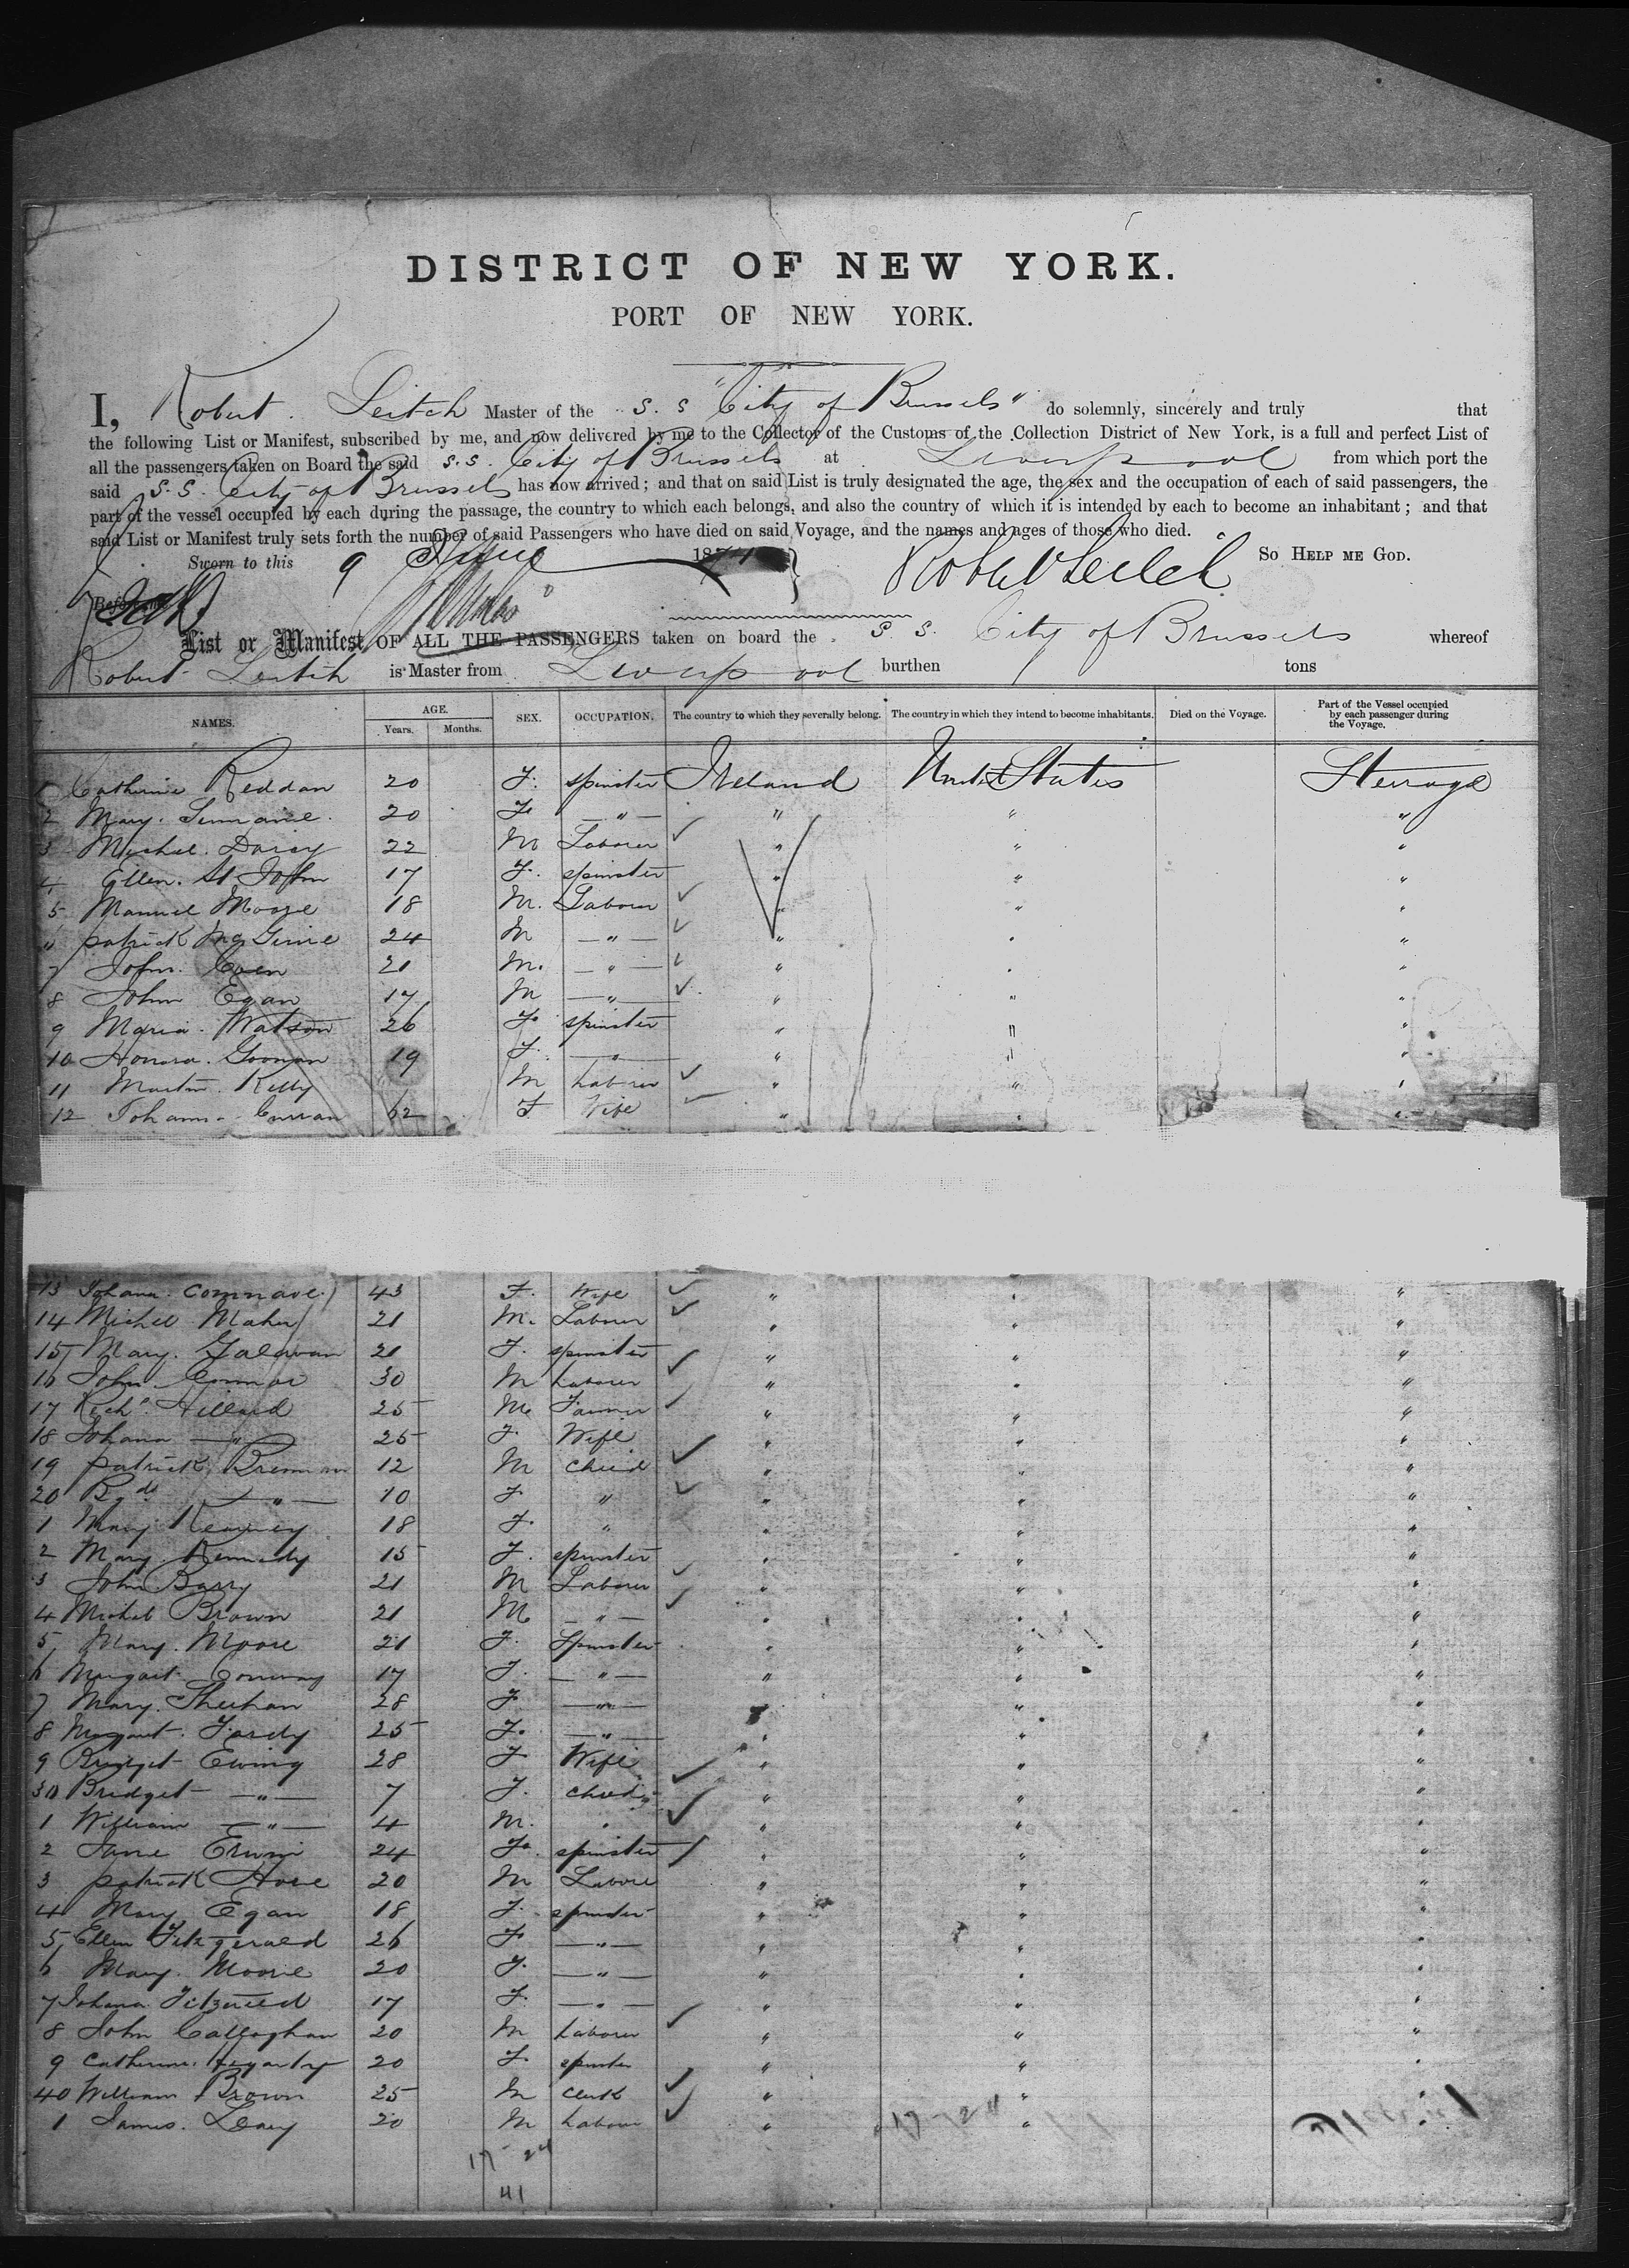 DISTRICT OF NEW YORK.
PORT OF NEW YORK.
I, Robert Leitch Master of the S. S "City of Brussels" do solemnly, sincerely and truly that
the following List or Manifest, subscribed by me, and now delivered by me to the Collector of the Customs of the Collection District of New York, is a full and perfect List of
all the passengers taken on Board the said S.S. City of Brussels at Liverpool from which port the
said S.S. City of Brussels has now arrived; and that on said List is truly designated the age, the sex and the occupation of each of said passengers, the
part of the vessel occupied by each during the passage, the country to which each belongs, and also the country of which it is intended by each to become an inhabitant; and that
said List or Manifest truly sets forth the number of said Passengers who have died on said Voyage, and the names and ages of those who died.
Sworn to this 9 June 1871 Robert Leitch So Help me God.
Before me
List or Manifest OF ALL THE PASSENGERS taken on board the S. S. City of Brussels whereof
Robert Leitch is Master from Liverpool burthen tons
NAMES. AGE. Years. Months. SEX. OCCUPATION. The country to which they severally belong. The country in which they intend to become inhabitants. Died on the Voyage. Part of the Vessel occupied by each passenger during the Voyage.
1 Catherine Reddan 20 F. spinster Ireland United States Steerage
2 Mary 20 F. — " — " " "
3 Michel. Darcy 22 M Laborer " " "
4 Ellen. St John 17 F. spinster " " "
5 Manuel Moore 18 M. Labourer " " "
" patrick 24 M — " — " " "
7 John. 21 M. — " — " " "
8 John Egan 17 M — " — " " "
9 Maria. Watson 26 F. spinster " " "
10 Honora. Goonan 19 F. — " — " " "
11 Martin. Kelly M Laborer " " "
12 Johanna Curran 62 F Wife " " "
13 Johana 43 F. Wife " " "
14 Michel Maher 21 M. Labourer " " "
15 Mary. Galavan 21 F. spinster " " "
16 John Connor 30 M Laborer " " "
17 Richd. Hillard 25 M Farmer " " "
18 Johana — " — 25 F. Wife " " "
19 patrick Brennan 12 M child " " "
20 Bgdt — " — 10 F " " " "
1 Mary Kearney 18 F. " " " "
2 Mary. Kennedy 15 F. spinster " " "
3 John Barry 21 M Laborer " " "
4 Michel Brown 21 M — " — " " "
5 Mary. Moore 21 F. Spinster " " "
6 Margaret Conway 17 F. — " — " " "
7 Mary. Sheehan 28 F — " — " " "
8 Margaret. Fardy 25 F. — " — " " "
9 Bridget Ewing 28 F Wife " " "
30 Bridget — " — 7 F. child " " "
1 William — " — 4 M. " " " "
2 Jane 24 F. spinster " " "
3 patrick Hore 20 M Labore " " "
4 Mary Egan 18 F. spinster " " "
5 Ellen Fitzgerald 26 F — " — " " "
6 Mary. Moore 20 F. — " — " " "
7 Johana 17 F. — " — " " "
8 John Callaghan 20 M Laborer " " "
9 Catherine. Hegarty 20 F. spinster " " "
40 William Brown 25 M Clerk " " "
1 James. Leary 20 M Labour " " "
17 24
41